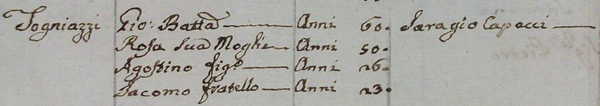 Togniazzi Gio: Batta Anni 60. Saragio Capocci
Rosa Sua Moglie Anni 50.
Agostino figo Anni 26.
Giacomo fratello Anni 23.